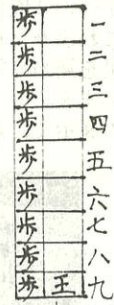 歩 一
歩 二
歩 三
歩 四
歩 五
歩 六
歩 七
歩 八
歩 王 九